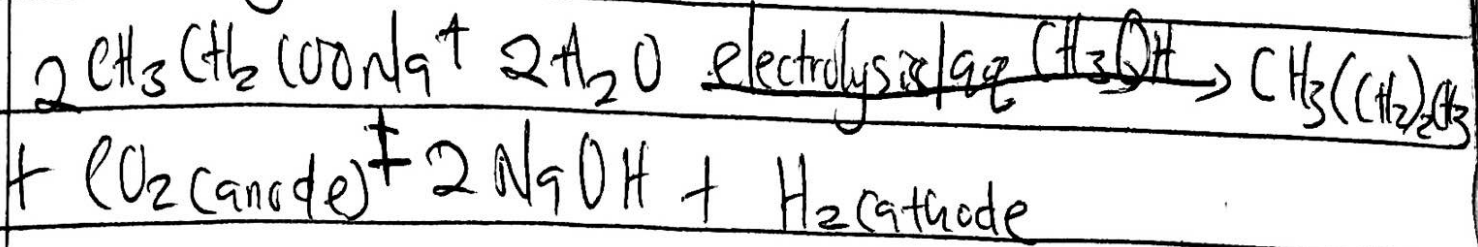 2 CH3 CH2 COONa + 2H2O electrolysis/aq CH3OH → CH3(CH2)2CH3
+ CO2 (anode) + 2 NaOH + H2 cathode